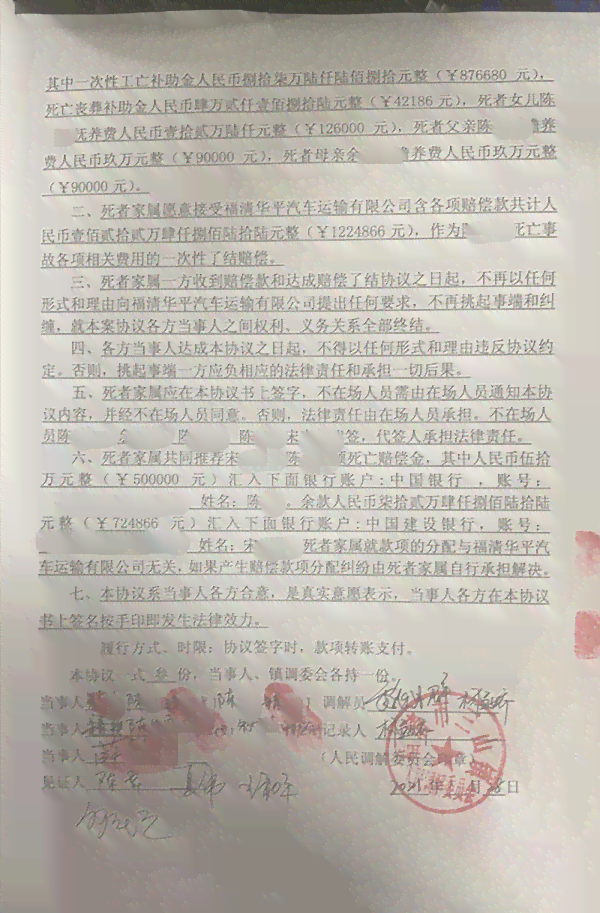 其中一次性工亡补助金人民币捌拾柒万陆仟陆佰捌拾元整（￥876680 元），
死亡丧葬补助金人民币肆万贰仟壹佰捌拾陆元整（￥42186 元），死者女儿陈
抚养费人民币壹拾贰万陆仟元整（￥126000 元），死者父亲陈 养
费人民币玖万元整（￥90000 元），死者母亲余 养费人民币玖万元整
（￥90000 元）。
二、死者家属愿意接受福清华平汽车运输有限公司含各项赔偿款共计人
民币壹佰贰拾贰万肆仟捌佰陆拾陆元整（￥1224866 元），作为 死亡事
故各项相关费用的一次性了结赔偿。
三、死者家属一方收到赔偿款和达成赔偿了结协议之日起，不再以任何
形式和理由向福清华平汽车运输有限公司提出任何要求，不再挑起事端和纠
缠，就本案协议各方当事人之间权利、义务关系全部终结。
四、各方当事人达成本协议之日起，不得以任何形式和理由违反协议约
定。否则，挑起事端一方应负相应的法律责任和承担一切后果。
五、死者家属应在本协议书上签字，不在场人员需由在场人员通知本协
议内容，并经不在场人员同意。否则，法律责任由在场人员承担。不在场人
员陈 陈 宋 签，代签人承担法律责任。
六、死者家属共同推荐宋 陈 死亡赔偿金，其中人民币伍拾
万元整（￥500000 元）汇入下面银行账户:中国银行 ，账号:
姓名:陈 。余款人民币柒拾贰万肆仟捌佰陆拾陆
元整（￥724866 元）汇入下面银行账户:中国建设银行，账号:
姓名:宋 死者家属就款项的分配与福清华平汽
车运输有限公司无关，如果产生赔偿款项分配纠纷由死者家属自行承担解决。
七、本协议系当事人各方合意，是真实意愿表示，当事人各方在本协议
书上签名按手印即发生法律效力。
履行方式、时限：协议签字时，款项转账支付。
本协议一式 叁 份，当事人、镇调委会各持一份。
当事人 调解员
当事人 记录人
当事人 （人民调解委员会印章）
见证人 2021 年 月 25 日